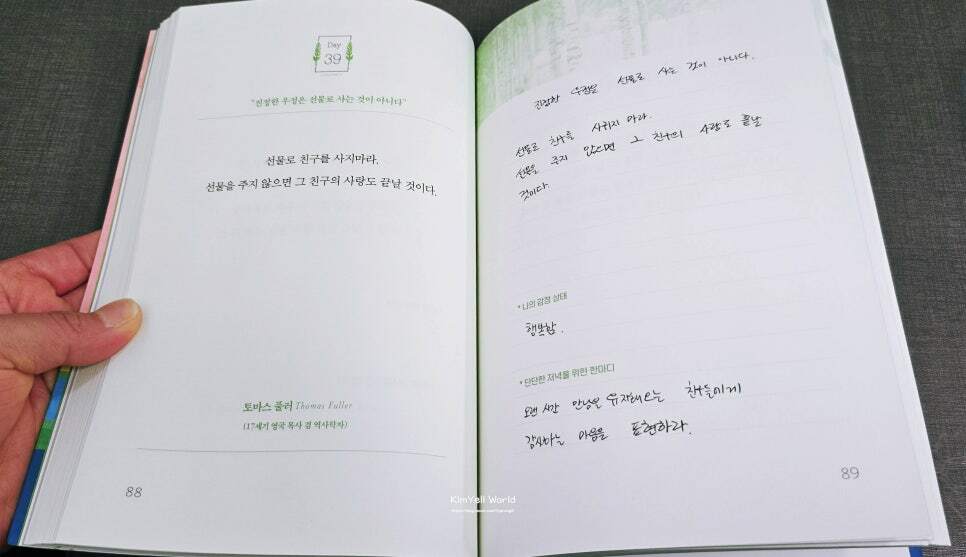 Day
39
"진정한 우정은 선물로 사는 것이 아니다"
선물로 친구를 사지마라.
선물을 주지 않으면 그 친구의 사랑도 끝날 것이다.
토마스 풀러 Thomas Fuller
(17세기 영국 목사 겸 역사학자)
88
진정한 우정은 선물로 사는 것이 아니다.
선물로 친구를 사귀지 마라.
선물을 주지 않으면 그 친구의 사랑도 끝날
것이다.
* 나의 감정 상태
행복함.
* 단단한 저녁을 위한 한마디
오랜 시간 만남을 유지해오는 친구들에게
감사하는 마음을 표현하라.
89
KimYeil World